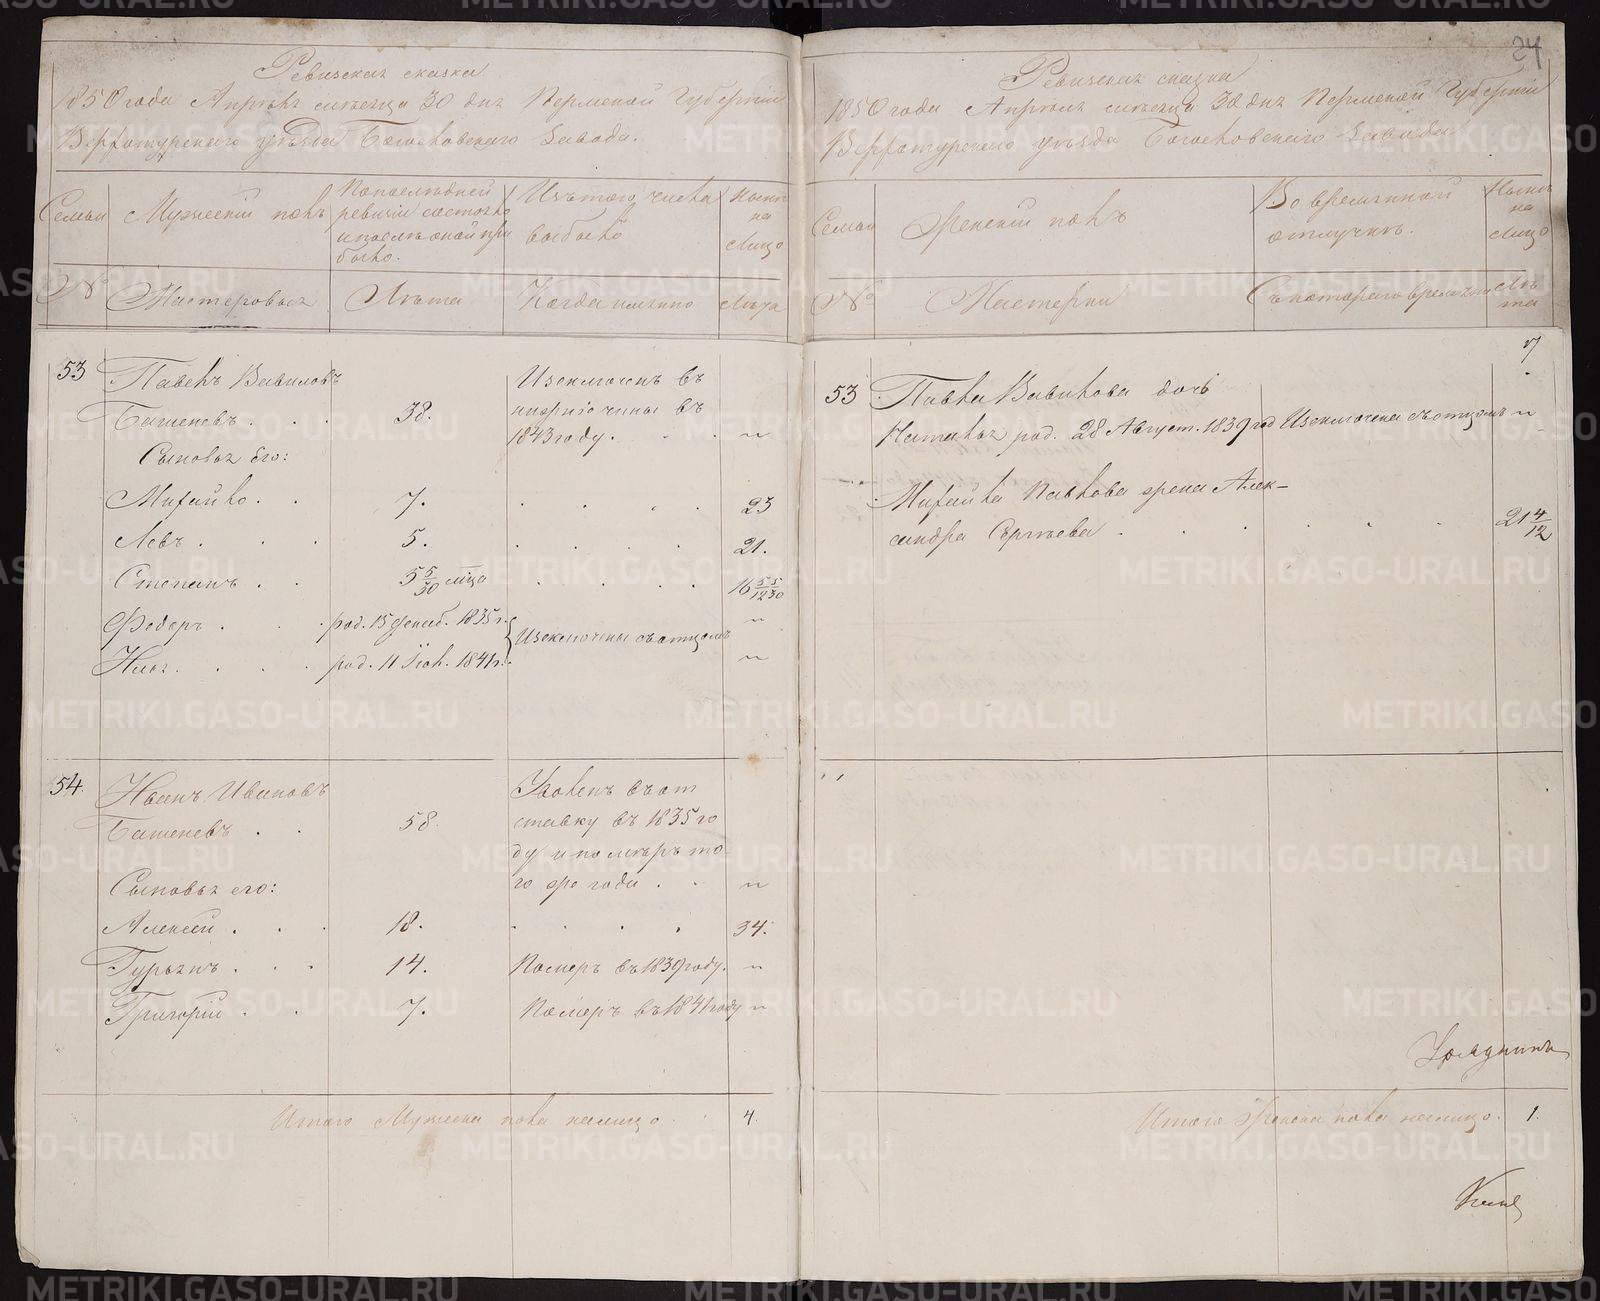 24
Ревизская сказка
1850 года Апреля месяца 30 дня Пермской Губернiи
Верхотурскаго уезда Богословскаго Завода.
Семьи
Мужескiй полъ
По последней ревизiи состояло и после оной прибыло.
Изъ того числа выбыло
Ныне на лицо
№
Мастеровыя
Лѣта
Когда именно
Лѣта
53
Павелъ Вавиловъ
Исключенъ въ
Башеневъ . . .
38.
нижнiе чины въ
1843 году. . .
"
Сыновья его:
Михайло . .
7.
23
Левъ . . .
5.
21.
Степанъ . .
5 5/30 мѣца
16 5/12 5/30
Федоръ . . .
род. 15 Декаб. 1835 г.
Исключены съ отцомъ
"
Илья . . . .
род. 11 Iюл. 1841 г.
"
54.
Иванъ Ивановъ
Уволенъ въ от
Башеневъ . .
58.
ставку въ 1835 го
ду и померъ то
Сыновья его:
го же года . .
"
Алексей . . .
18.
34.
Гурьянъ . . .
14.
Померъ въ 1839 году.
"
Григорiй . .
7.
Померъ въ 1841 году
"
Итого Мужеска пола налицо
4
Ревизская сказка
1850 года Апреля месяца 30 дня Пермской Губернiи
Верхотурскаго уезда Богословскаго Завода
Семьи
Женскiй полъ
Во временной отлучке.
Ныне на лицо
№
Мастерки
Съ котораго времени
Лѣта
7
53
Павла Вавилова дочь
Наталья род. 28 Август. 1839 год
Исключена съ отцомъ
"
Михайла Павлова жена Алек-
сандра Сергѣева .
21 4/12
Итого Женска пола налицо.
1.
METRIKI.GASO-URAL.RU